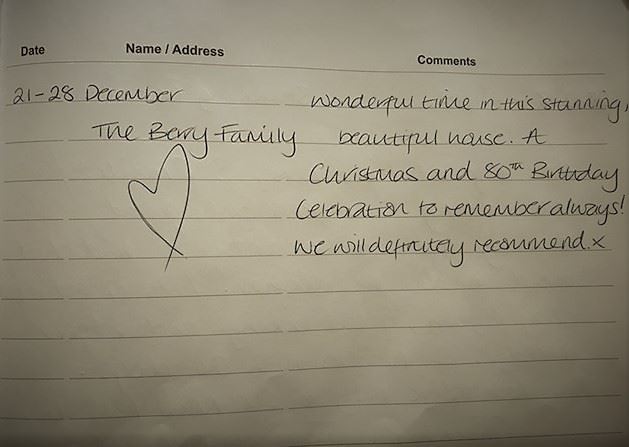 Date Name / Address Comments
21-28 December Wonderful time in this stunning,
The Berry Family beautiful house. A
Christmas and 80th Birthday
Celebration to remember always!
We will definitely recommend. x